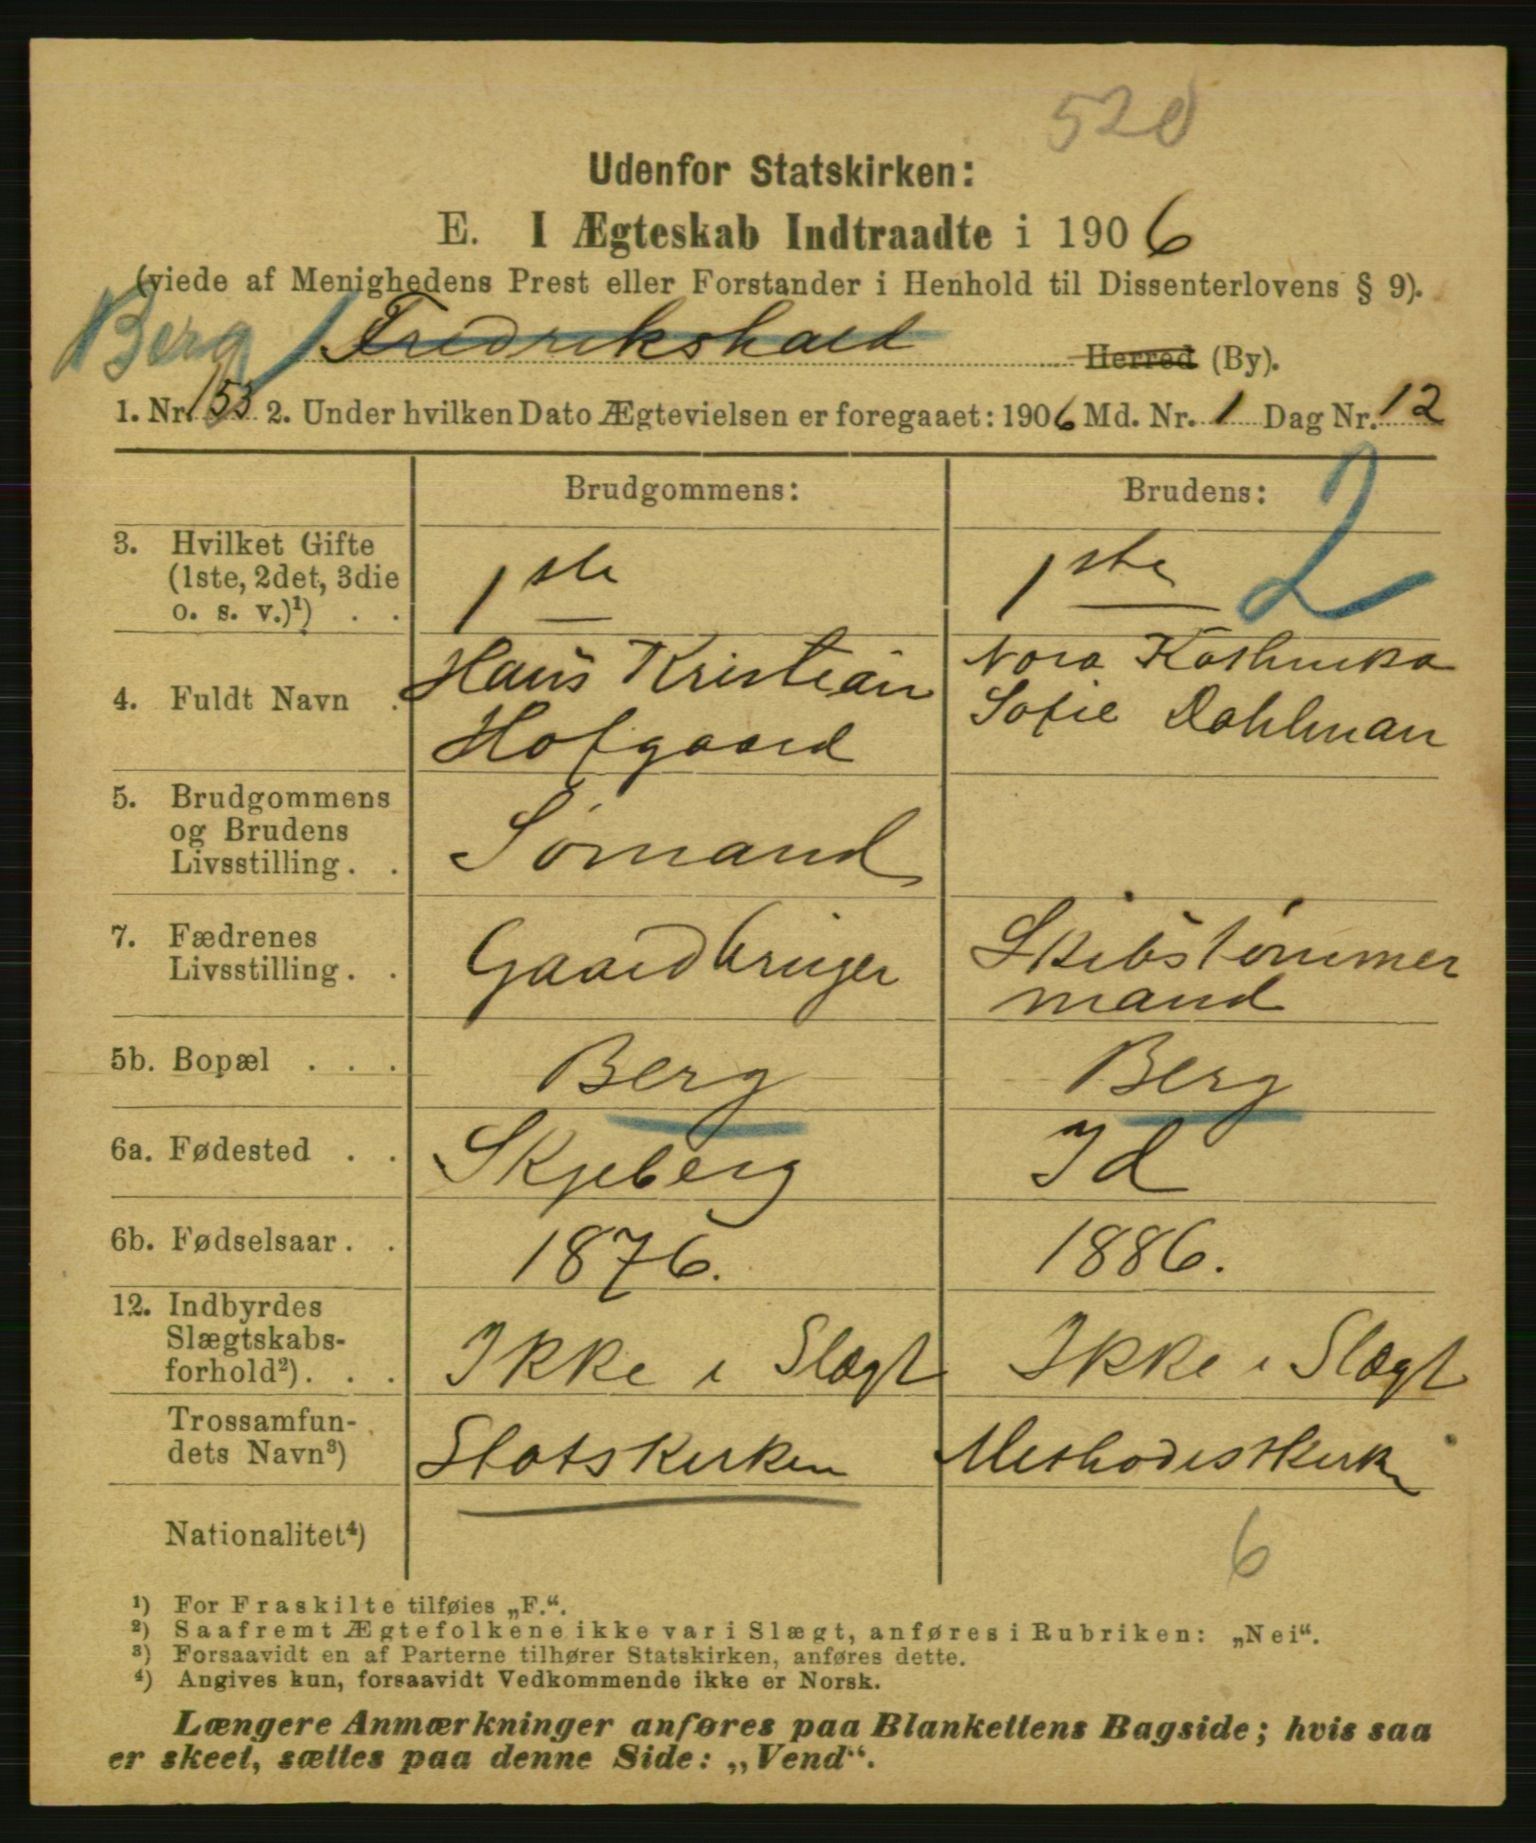 520
Udenfor Statskirken:
E. I Ægteskab Indtraadte i 1906
(viede af Menighedens Prest eller Forstander i Henhold til Dissenterlovens § 9).
Berg Fredrikshald Herred (By).
1. Nr. 153 2. Under hvilken Dato Ægtevielsen er foregaaet: 1906 Md. Nr. 1 Dag Nr. 12
Brudgommens: Brudens: 2
3. Hvilket Gifte
(1ste, 2det, 3die
o. s. v.)¹) . . 1ste 1ste
4. Fuldt Navn . Hans Kristian Nora Kathinka
Hofgaard Sofie Dahlman
5. Brudgommens
og Brudens
Livsstilling . . Sømand
7. Fædrenes
Livsstilling . . Gaardbruger Skibstømmer
mand
5b. Bopæl . . . Berg Berg
6a. Fødested . . Skjeberg Id
6b. Fødselsaar . . 1876. 1886.
12. Indbyrdes
Slægtskabs-
forhold²) . . . Ikke i Slægt Ikke i Slægt
Trossamfun-
dets Navn³) Statskirken Methodistkirk
Nationalitet⁴) 6
¹) For Fraskilte tilføies „F.“.
²) Saafremt Ægtefolkene ikke var i Slægt, anføres i Rubriken: „Nei“.
³) Forsaavidt en af Parterne tilhører Statskirken, anføres dette.
⁴) Angives kun, forsaavidt Vedkommende ikke er Norsk.
Længere Anmærkninger anføres paa Blankettens Bagside; hvis saa
er skeet, sættes paa denne Side: „Vend“.